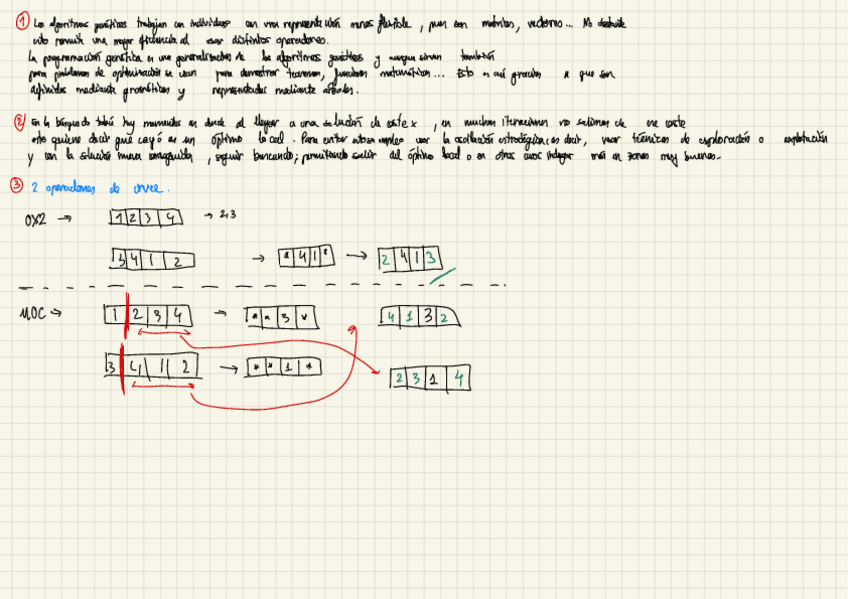 ① Los algoritmos genéticos trabajan con individuos con una representación menos flexible, pues son matrices, vectores... No obstante
esto permite una mayor eficiencia al usar distintos operadores.
La programación genética es una generalización de los algoritmos genéticos y aunque sirvan también
para problemas de optimización se usan para demostrar teoremas, funciones matemáticas... Esto es así gracias a que son
definidos mediante gramáticas y representados mediante árboles.
② En la búsqueda tabú hay momentos en donde al llegar a una solución de coste x, en muchas iteraciones no salimos de ese coste
esto quiere decir que cayó en un óptimo local. Para evitar esto empleo usar la oscilación estratégica es decir, usar técnicas de exploración o explotación
y con la solución nueva conseguida, seguir buscando; permitiendo salir del óptimo local o en otros casos indagar más en zonas muy buenas.
③ 2 operadores de cruce.
OX2 → 1 2 3 4 → 2,3
3 4 1 2 → * 4 1 * → 2 4 1 3
MOC → 1 2 3 4 → * * 3 * 4 1 3 2
3 4 1 2 → * * 1 * 2 3 1 4